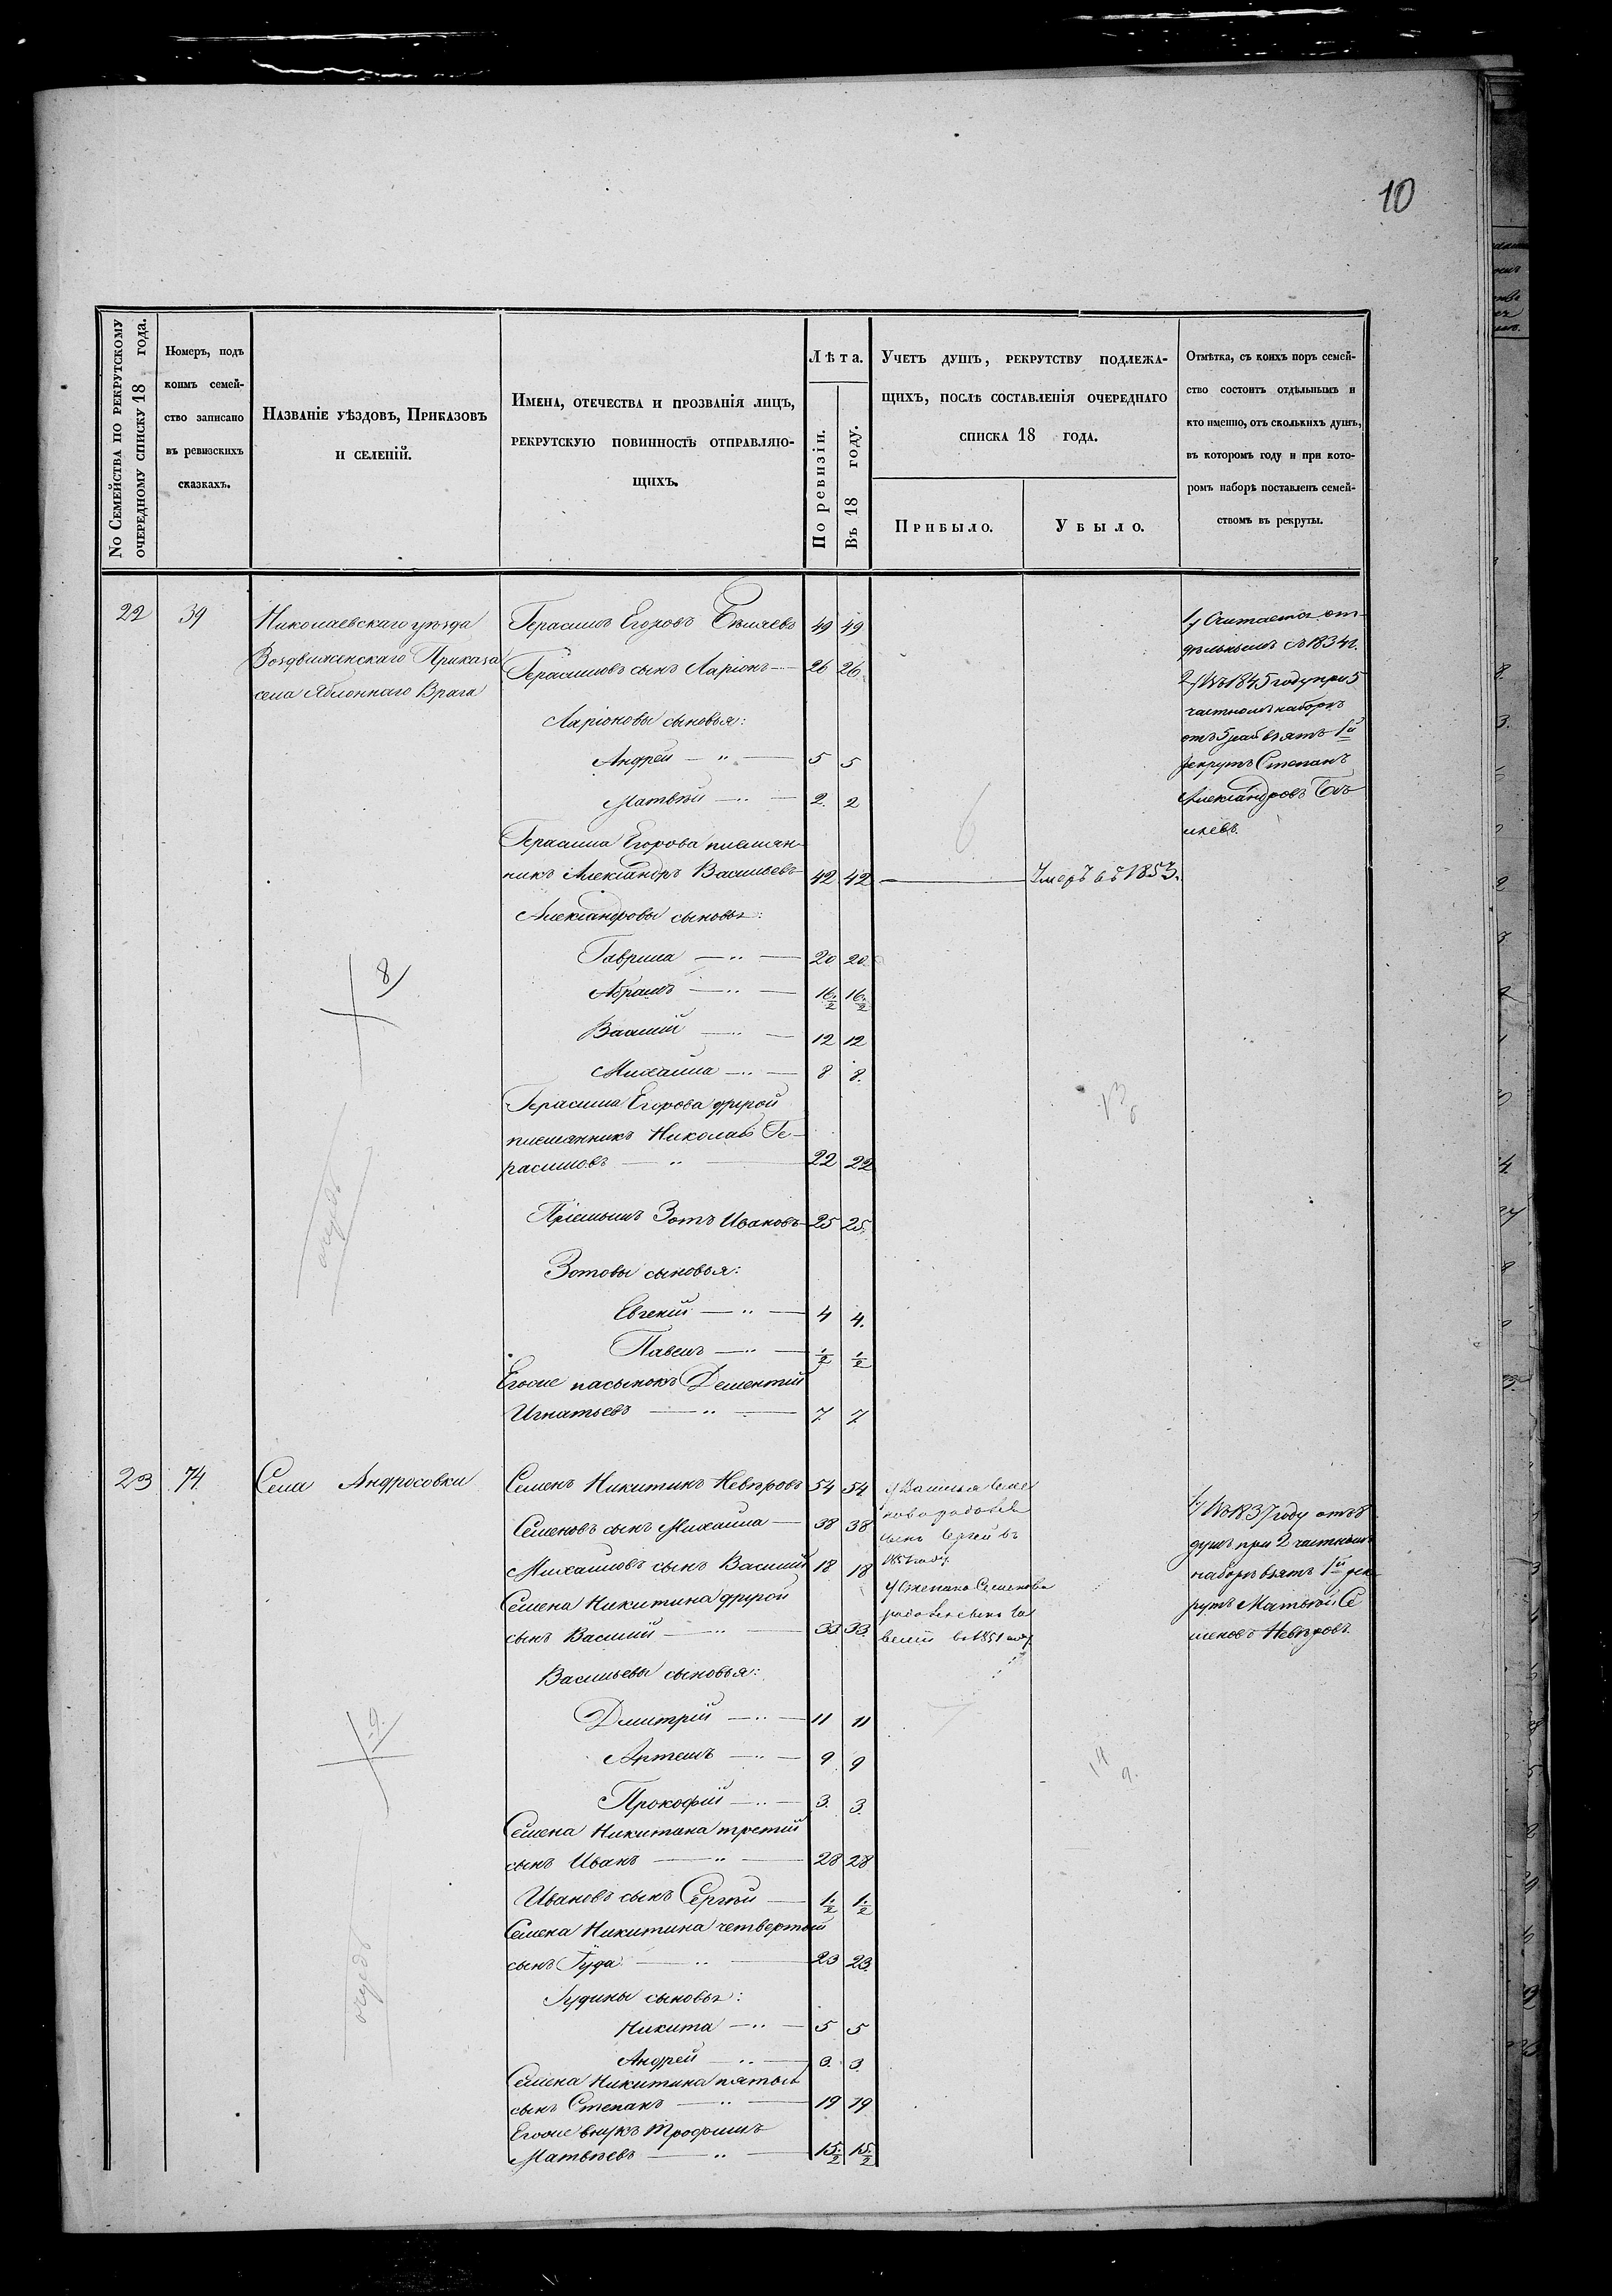 10
No Семейства по рекрутскому очередному списку 18 года.
Номеръ, подъ коимъ семейство записано въ ревизскихъ сказкахъ.
Названіе уѣздовъ, Приказовъ и селеній.
Имена, отечества и прозванія лицъ, рекрутскую повинность отправляющихъ.
Лѣта.
По ревизіи.
Въ 18 году.
Учетъ душъ, рекрутству подлежащихъ, послѣ составленія очереднаго списка 18 года.
Прибыло.
Убыло.
Отмѣтка, съ коихъ поръ семейство состоитъ отдѣльнымъ и кто именно, отъ сколькихъ душъ, въ которомъ году и при которомъ наборѣ поставленъ семействомъ въ рекруты.
22 39
Николаевскаго уѣзда
Воздвиженскаго Приказа
села Яблоннаго Врага
Герасимъ Егоровъ Бѣляевъ 49 49
Герасимовъ сынъ Ларіонъ — 26 26
Ларіоновы сыновья:
Андрей — " — 5 5
Матвѣй — " — 2 2
Герасима Егорова племян-
никъ Александръ Васильевъ 42 42 — Умеръ въ 1853.
Александровы сыновья:
Гаврила — " — 20 20
Абрамъ — " — 16 1/2 16 1/2
Василій — " — 12 12
Михаила — " — 8 8.
Герасима Егорова другой
племянникъ Николай Ге-
расимовъ — " — 22 22
Пріемышъ Зотъ Ивановъ 25 25.
Зотовы сыновья:
Евгеній — " — 4 4.
Павелъ — " — 1/2 1/2
Егоже пасынокъ Дементій
Игнатьевъ — " — 7 7
1/ Считается от-
дѣльнымъ съ 1834 г.
2/ Въ 1845 году при 5
частномъ наборѣ
отъ 5 взятъ 1й
рекрутъ Степанъ
Александровъ Бѣ-
ляевъ.
8
6
13
очередь
23 74
Села Андросовки
Семенъ Никитинъ Невѣровъ 54 54
Семеновъ сынъ Михаила — 38 38
Михаиловъ сынъ Василій 18 18
Семена Никитина другой
сынъ Василій — " — 33 33
Васильевы сыновья:
Дмитрій — " — 11 11
Артемъ — " — 9 9
Прокофій — " — 3. 3.
Семена Никитина третій
сынъ Иванъ — " — 28 28
Ивановъ сынъ Сергѣй — 1 1/2 1 1/2
Семена Никитина четвертый
сынъ Гуда — " — 23 23
Гудины сыновья:
Никита — " — 5 5
Андрей — " — 3. 3.
Семена Никитина пятый
сынъ Степанъ — " — 19 19
Егоже внукъ Трофимъ
Матвѣевъ — " — 15 1/2 15 1/2
У Василья Семе
нова родовъ
сынъ Сергѣй въ
У Степана Семенова
сынъ
въ 1851 году
1/ Въ 1837 году отъ 8
душъ при 2 частномъ
наборѣ взятъ 1й рек-
рутъ Матвѣй Се
меновъ Невѣровъ.
9.
14
9.
очередь